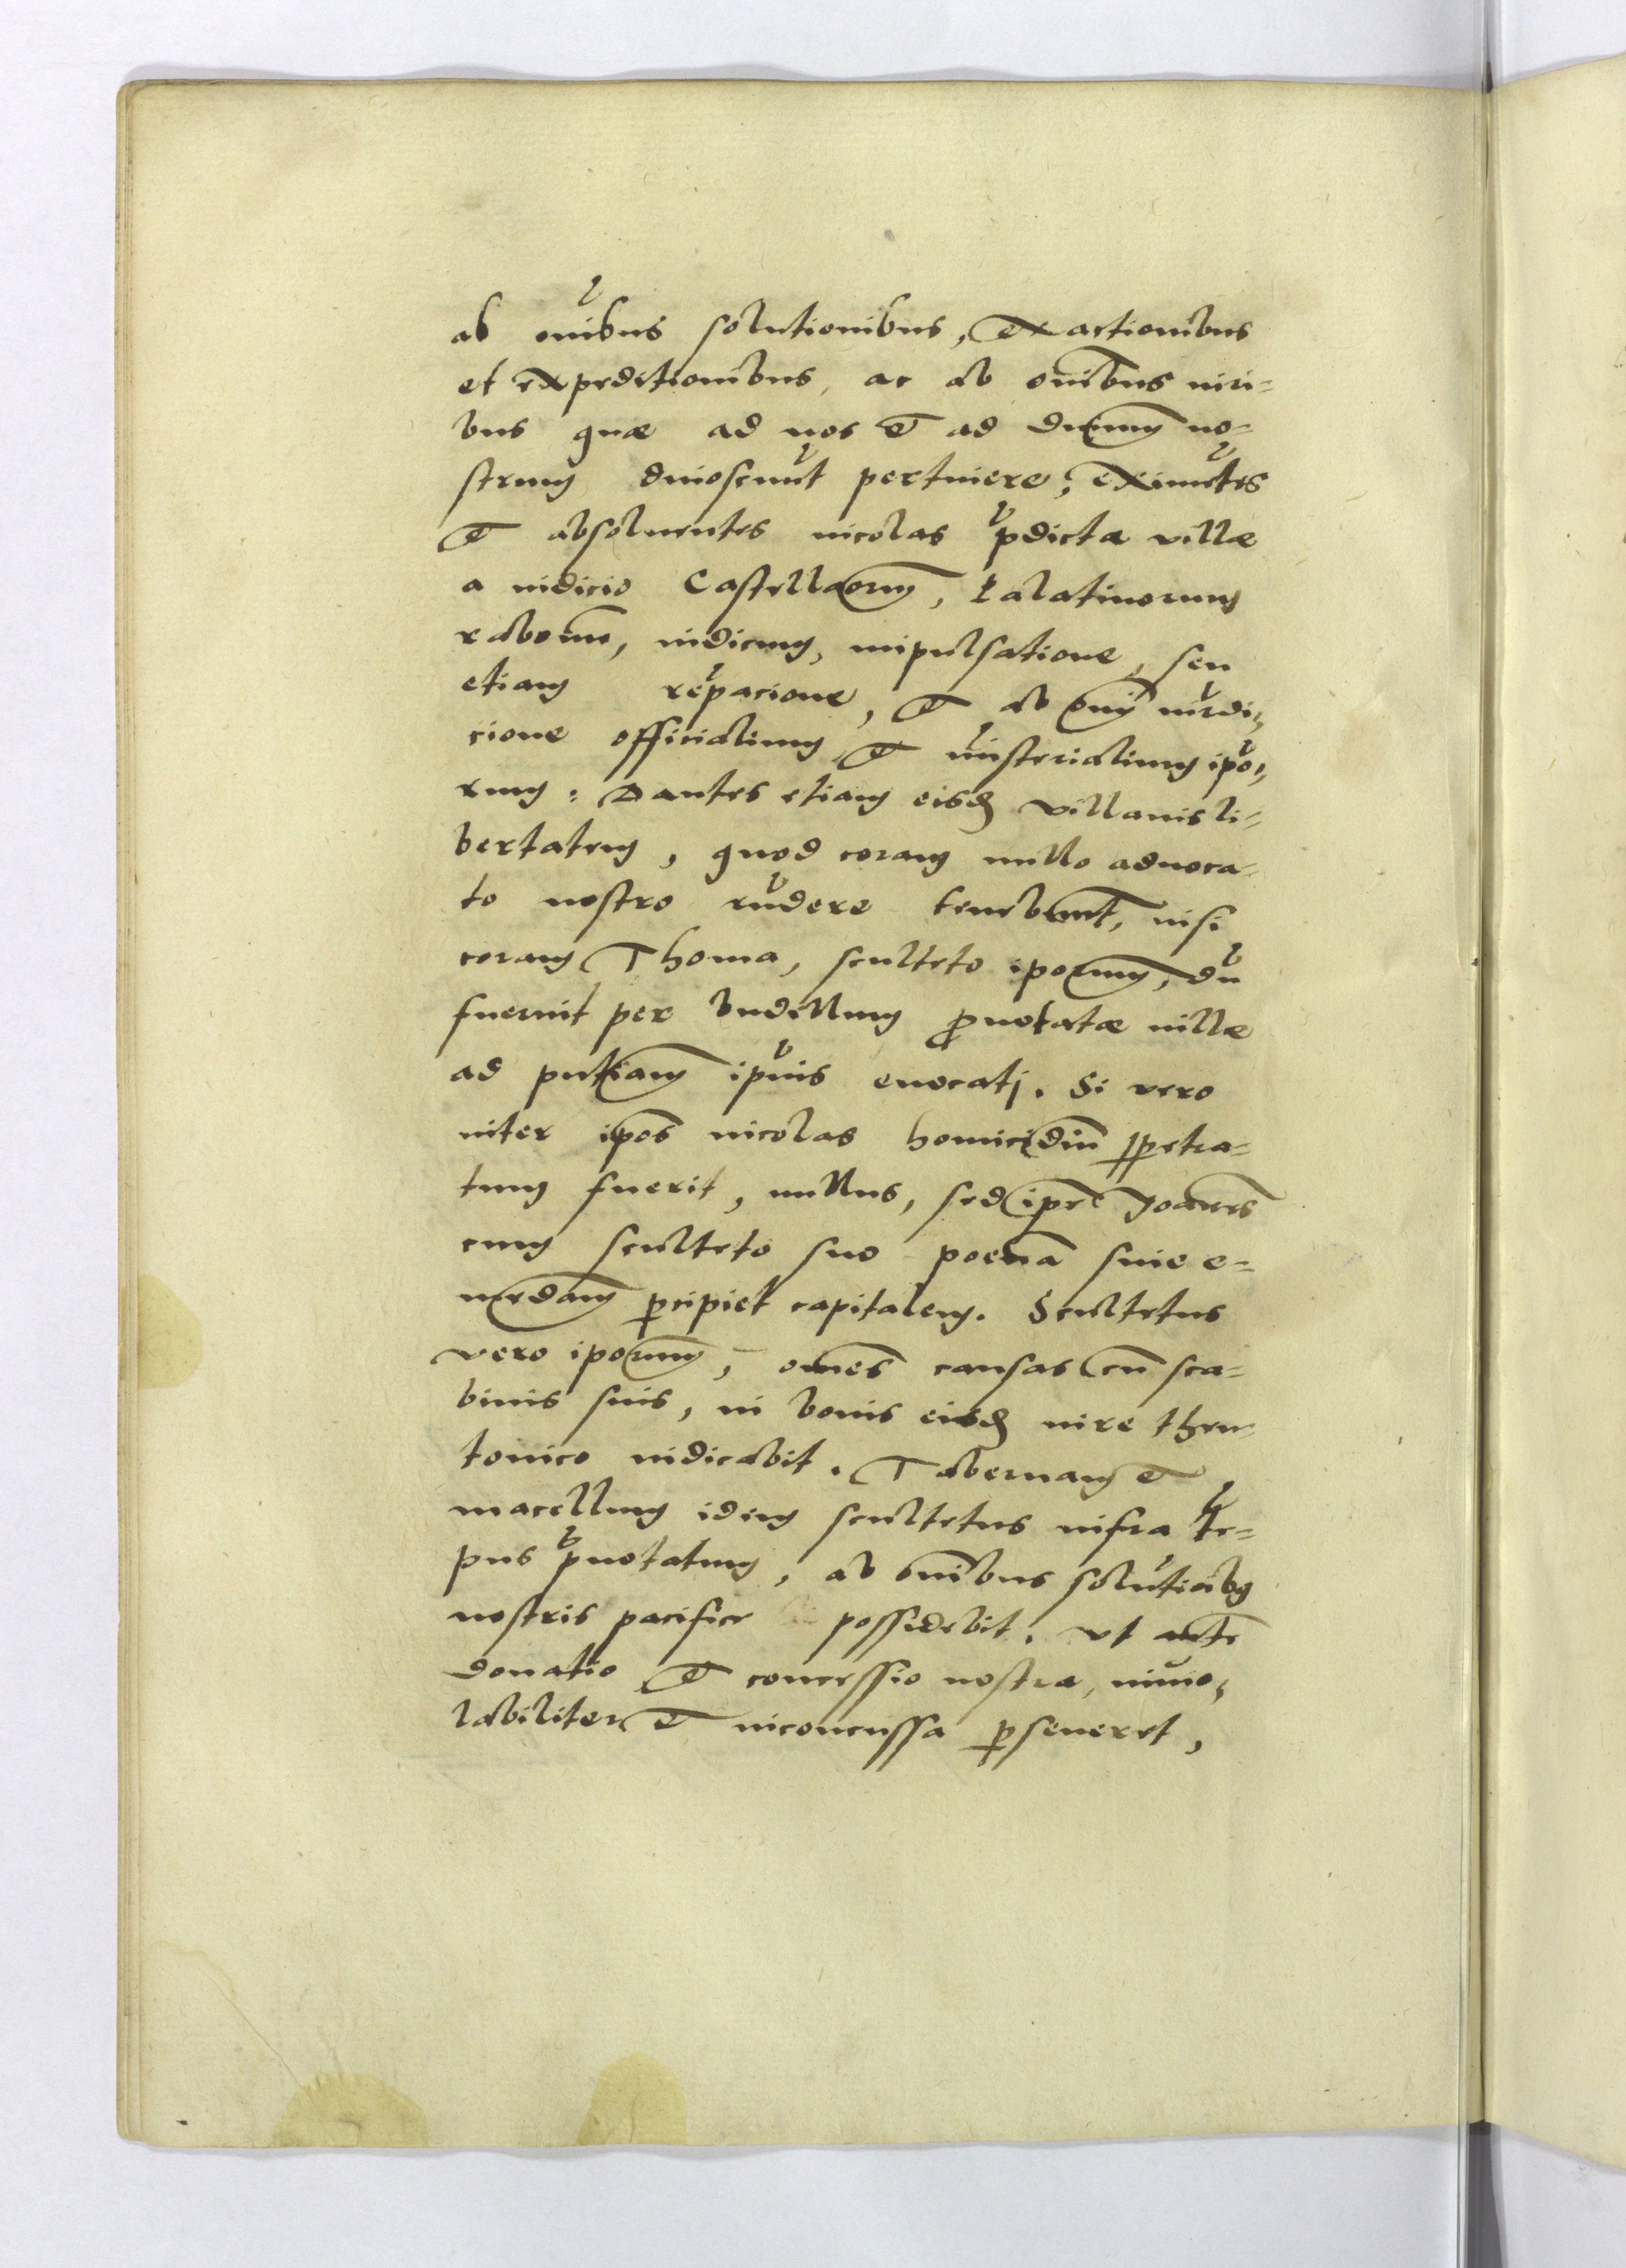 ab om̃ibus solutionibus, exactionibus
et expeditionibus, ac ab om̃ibus iuri-
bus quæ ad nos et ad dominium no-
strum dinoscunt̃ pertinere; eximẽtes
et absoluentes incolas p̃dictæ villæ
a iudicio Castellãorum, Palatinorum
rabonum, iudicum, impulsatione, seu
etiam reṽpacione, et ab om̃i iũrdi-
cione officialium et ministerialium ip̃o-
rum: Dantes etiam eisdẽ villanis li-
bertatem, quod coram nullo aduoca-
to nostro rñdere tenebunt̃, nisi
coram Thoma, sculteto ip̃orum, dũ
fuerint per budellum prænotatæ villæ
ad pñtiam ip̃ius euocati. Si vero
inter ip̃os incolas homicidiũ ꝑpetra-
tum fuerit, nullus, sed ip̃e Joannes
cum sculteto suo poenã siue e-
mẽdam ꝑcipiet capitalem. Scultetus
vero ip̃orum, om̃es causas cũ sca-
binis suis, in bonis eisdẽ iure theu-
tonico iudicabit. Tabernam et
macellum idem scultetus infra tẽ-
pus p̃notatum, ab om̃ibus solutiõibꝫ
nostris pacifice possidebit. vt autẽ
donatio et concessio nostra, inuio-
labiliter et inconcussa ꝑseueret,